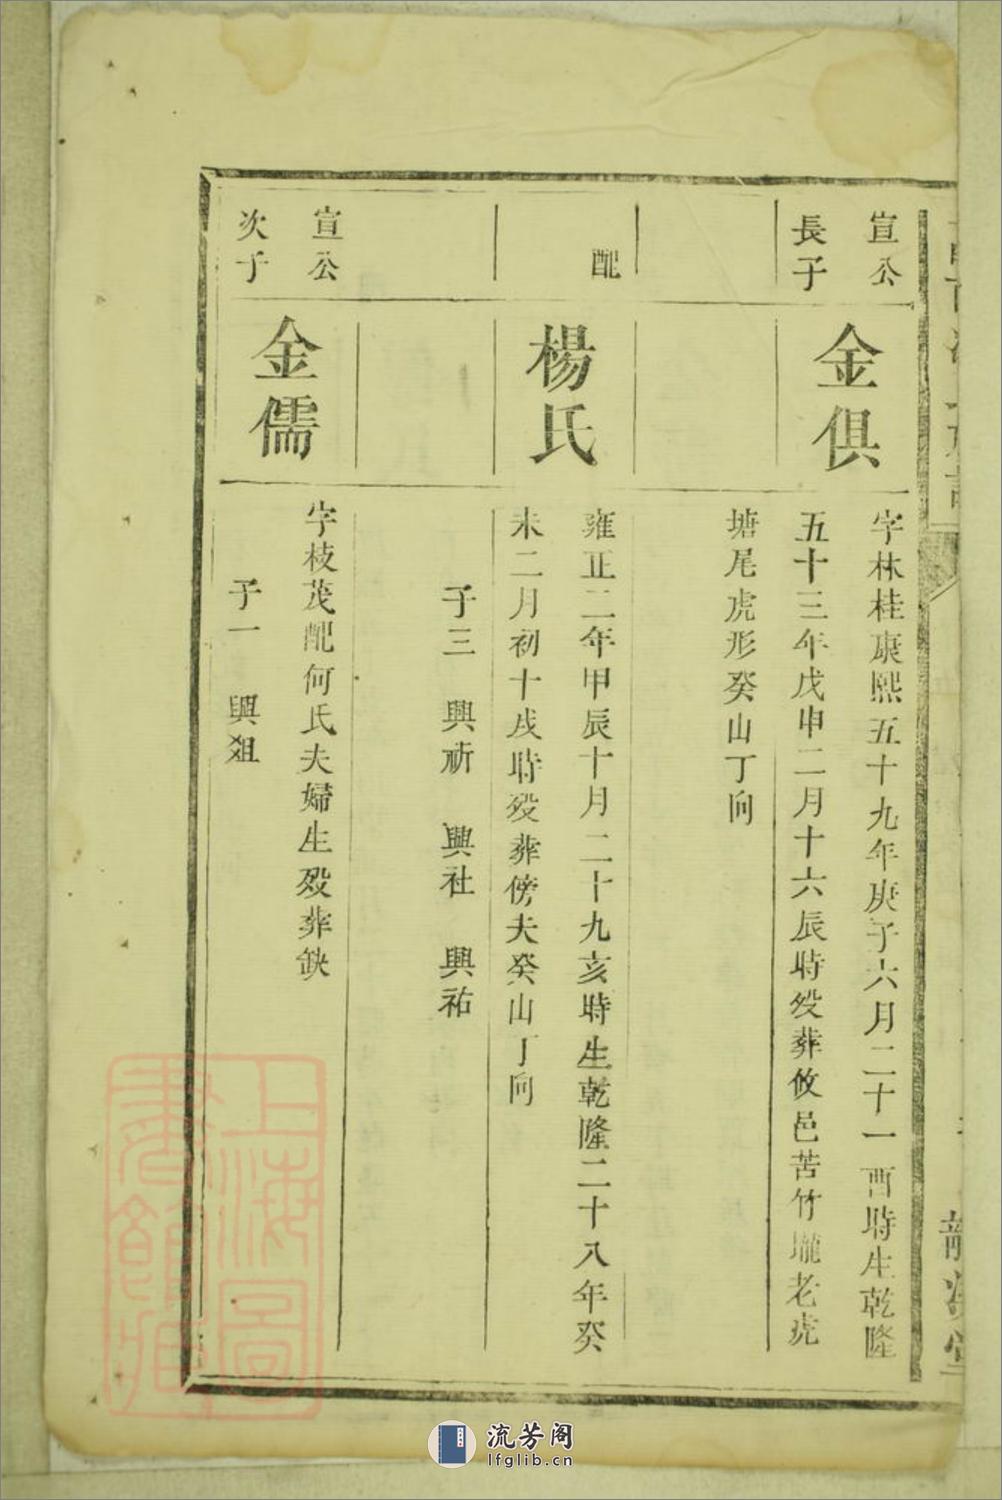 宣公
長子
金俱
字林桂康熙五十九年庚子六月二十一酉時生乾隆
五十三年戊申二月十六辰時殁葬攸邑苦竹壠老虎
塘尾虎形癸山丁向
配
楊氏
雍正二年甲辰十月二十九亥時生乾隆二十八年癸
未二月初十戌時殁葬傍夫癸山丁向
子三　興祈　興社　興祐
宣公
次子
金儒
字枝茂配何氏夫婦生殁葬缺
子一　興爼
上海圖
書館藏
流芳阁
lfglib.cn